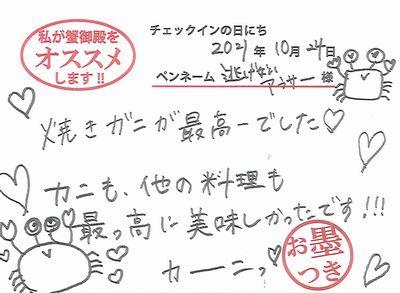 私が蟹御殿を
オススメ
します!!
チェックインの日にち
2021年10月24日
ペンネーム 逃げない
アラサー 様
焼きガニが最高ーでした♡
カニも、他の料理も
最っ高に美味しかったです!!!
カーニっ♡
お墨
つき